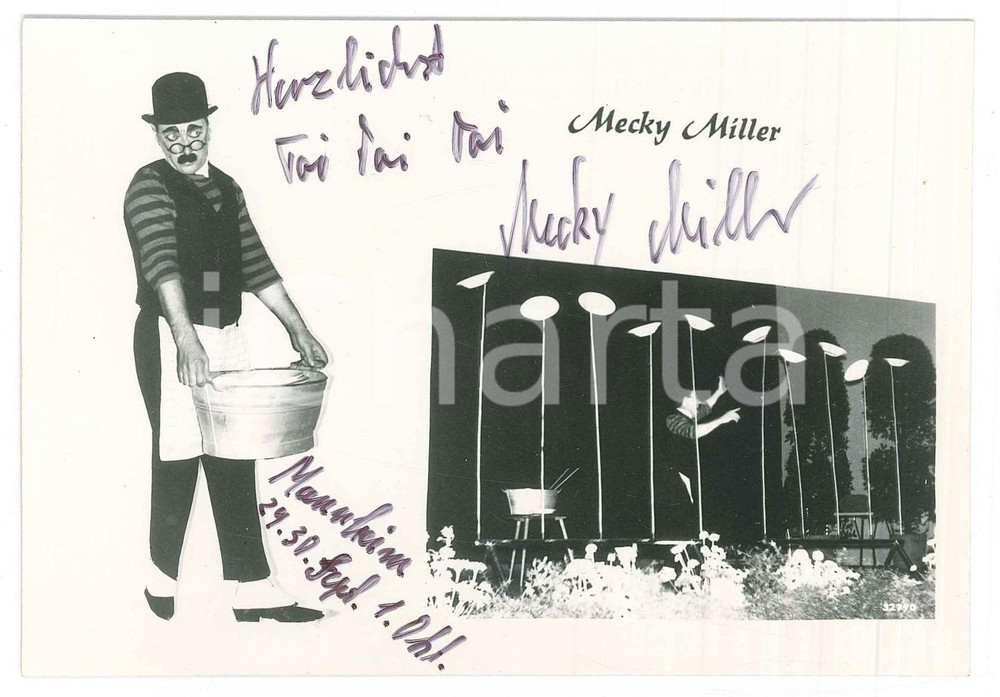 Herzlichst
Toi Toi Toi
Mecky Miller
Mecky Miller
iCharta
Mannheim
29.30. Sept. 1. Okt.
32790